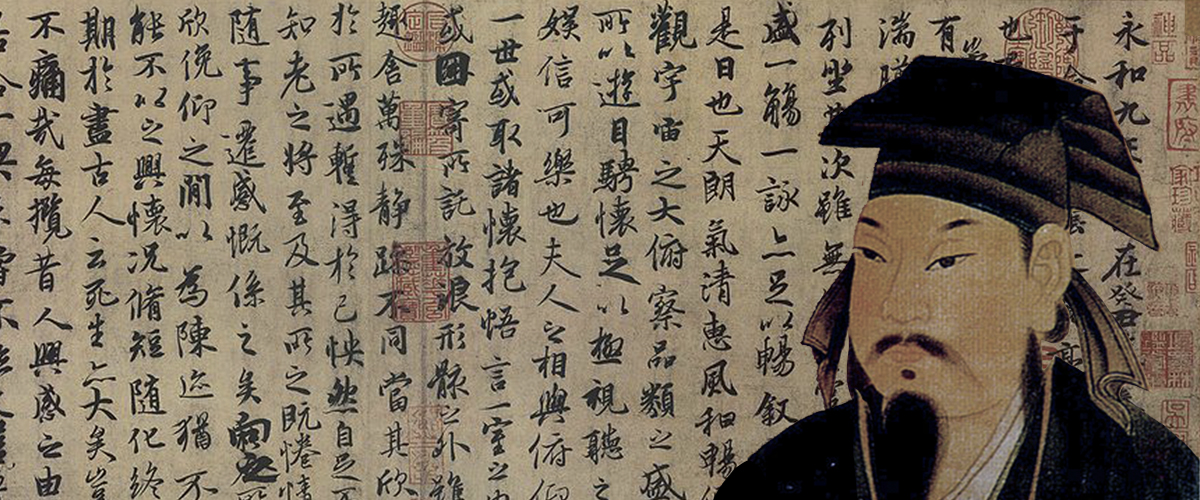 永和九在癸丑
于
也
有
湍
列坐其次雖無
盛一觴一詠亦足以暢叙
是日也天朗氣清惠風和暢
觀宇宙之大俯察品類之盛
所以遊目騁懷足以極視聽之
娛信可樂也夫人之相與俯仰
一世或取諸懷抱悟言一室之
或因寄所託放浪形骸之外雖
趣舍萬殊静躁不同當其欣
於所遇暫得於己怏然自足不
知老之將至及其所之既惓情
隨事遷感慨係之矣向之所
欣俛仰之閒以為陳迹猶不
能不以之興懷況脩短隨化終
期於盡古人云死生亦大矣豈
不痛哉每攬昔人興感之由